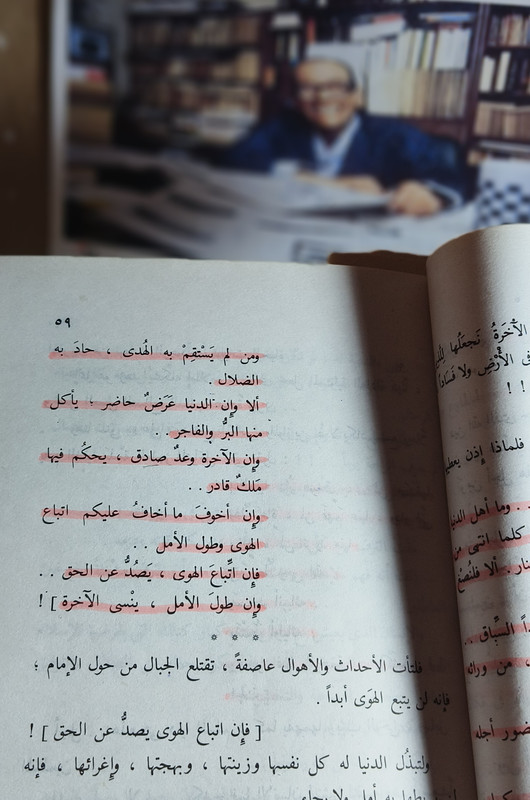 ٥٩
ومن لم يَسْتقِمْ به الهُدى ، حادَ به
الضلال .
ألا وإن الدنيا عَرَضٌ حاضِر ! يأكل
منها البرُّ والفاجر . .
وإن الآخرة وعدٌ صادق ، يحكُم فيها
مَلكٌ قادر . .
وإن أخوفَ ما أخافُ عليكم اتباع
الهوى وطول الأمل . .
فإن اتِّباعَ الهوى ، يَصُدُّ عن الحق . .
وإن طولَ الأمل ، ينْسى الآخرة ] !
* * *
فلتأت الأحداث والأهوال عاصفةً ، تقتلع الجبال من حول الإمام ؛
فإنه لن يتبع الهوَى أبداً .
[ فإن اتباع الهوى يصدُّ عن الحق ] !
ولتبذُل الدنيا له كل نفسها وزينتها ، وبهجتها ، وإغرائها ، فإنه
الآخرَةُ نَجعَلُها
الأرْضِ ولا فَسَاداً
! !
فلماذا إذن
. . وما أهل
كلما
نار . . ألا
السبَّاق . .
من ورائه
أجله